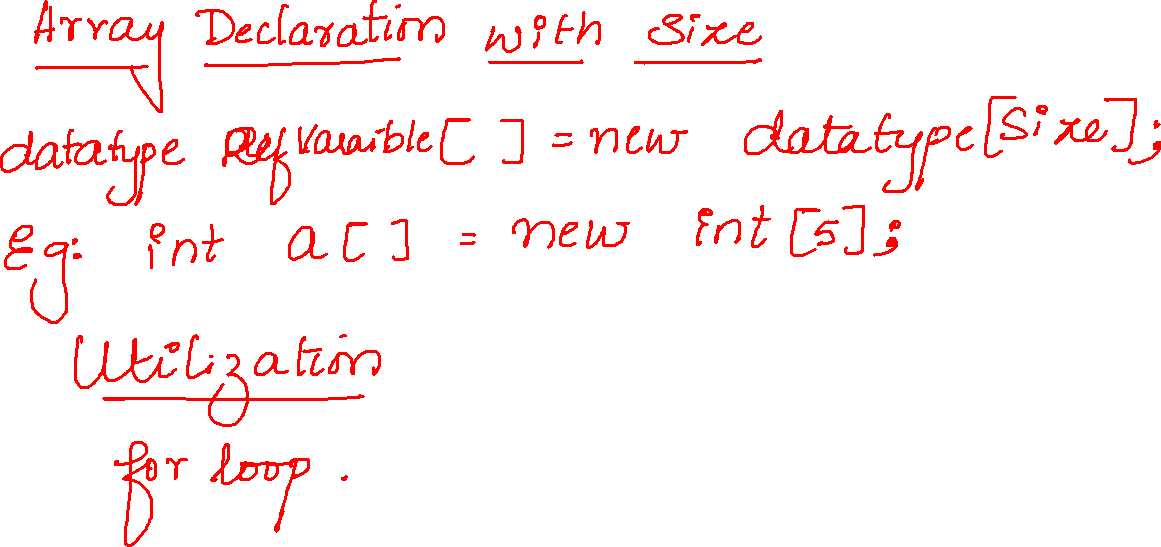 Array Declaration with Size
datatype RefVaraible[ ] = new datatype[Size];
Eg: int a[ ] = new int[5];
Utilization
for loop.